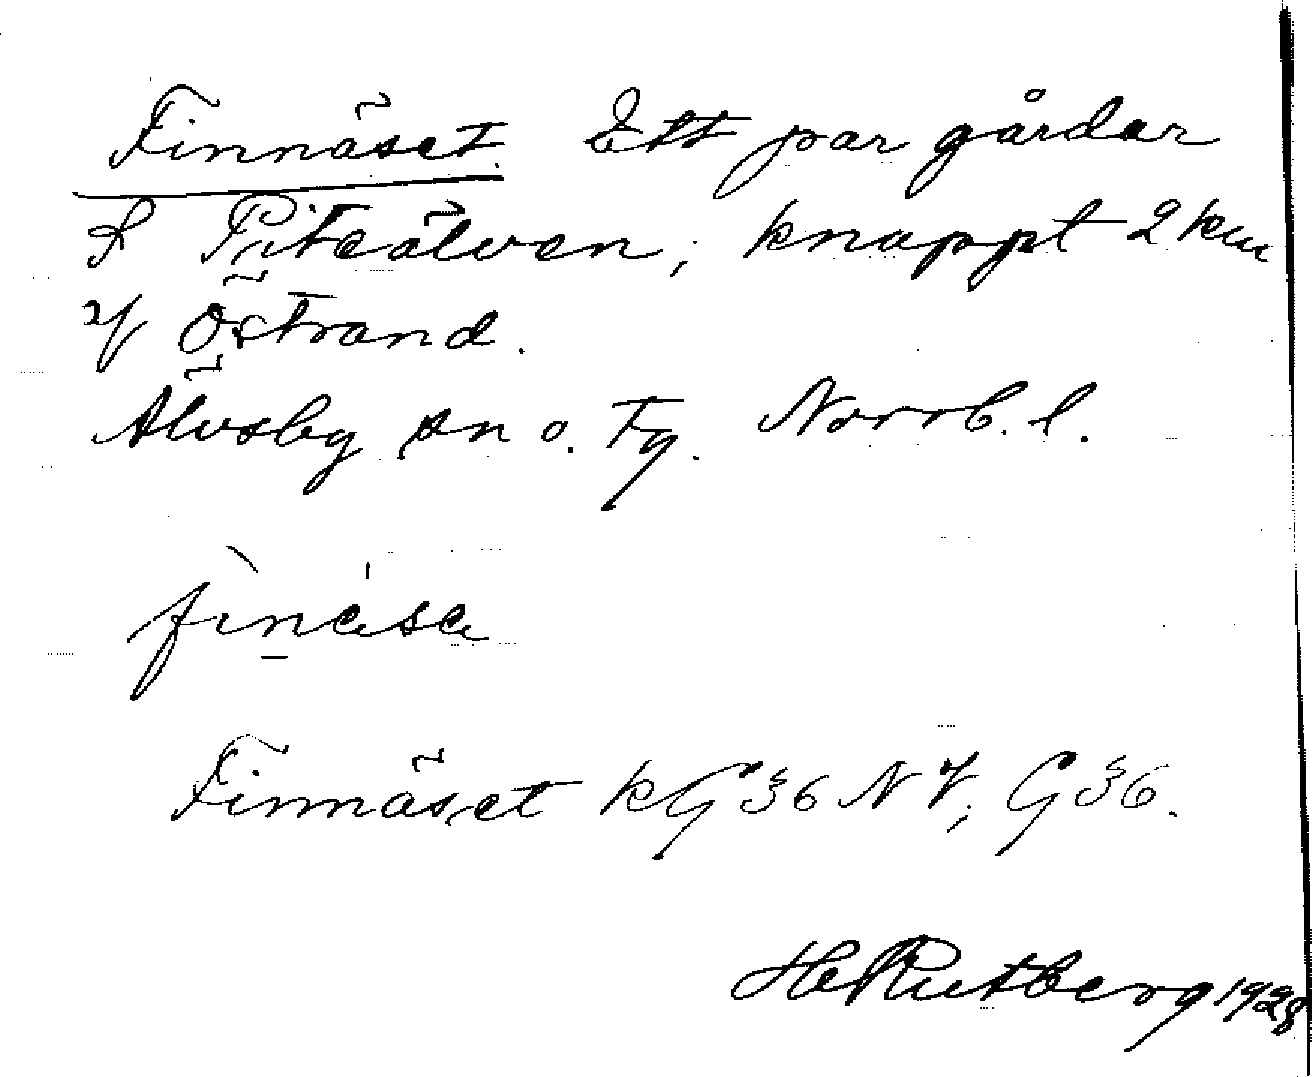 Finnäset. Ett par gårdar
S Piteälven, knappt 2 km
V Östrand.
Älvsby sn o. Tg. Norrb. l.
Finnäset kG36 NV, G36.
H Rutberg 1928